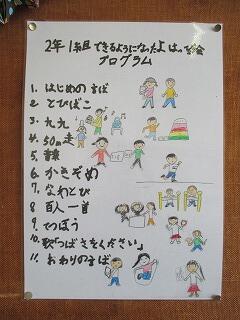 2年1組 できるようになったよ はっぴょう会
プログラム
1. はじめのことば
2 とびばこ
3. 九九
4. 50m走
5 音楽
6 かきぞめ
7. なわとび
8 百人一首
9. てつぼう
10. 歌「つばさをください」
11. おわりのことば